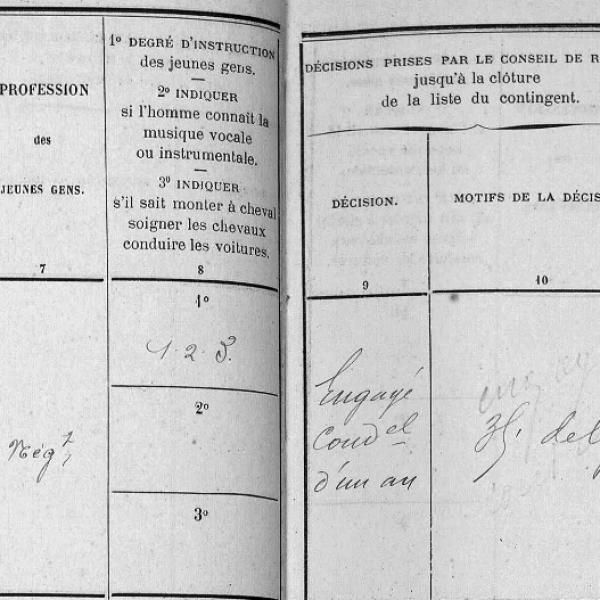 PROFESSION
des
JEUNES GENS.
7
Nég^t
1º DEGRÉ D'INSTRUCTION
des jeunes gens.
2º INDIQUER
si l'homme connaît la
musique vocale
ou instrumentale.
3º INDIQUER
s'il sait monter à cheval
soigner les chevaux
conduire les voitures.
8
1º
1. 2. 3.
2º
3º
DÉCISIONS PRISES PAR LE CONSEIL DE R
jusqu'à la clôture
de la liste du contingent.
DÉCISION.
9
Engagé
Cond^el
d'un an
MOTIFS DE LA DÉCIS
10